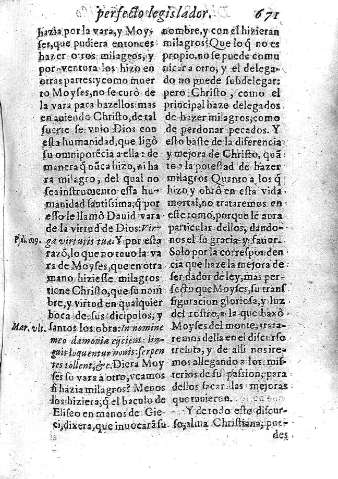 perfecto legislador. 671
hazia por la vara, y Moy-
ses, que pudiera entonces
hazer otros milagros, y
por ventura los hizo en
otras partes: y como muer
to Moyses, no se curò de
la vara para hazellos: mas
en auiendo Christo, de tal
suerte se vnio Dios con
esta humanidad, que ligó
su omnipotēcia a ella: de
manera q̃ nūca hizo, ni ha
ra milagro, del qual no
sea instrumento esta hu-
manidad santissima; q̃ por
esso le llamò Dauid vara
de la virtud de Dios: Vir-
Ps. 109. ga virtutis tuæ. Y por esta
razō, lo que no tuuo la va
ra de Moyses, que en otra
mano hiziesse milagros
tiene Christo, que su nom
bre, y virtud en qualquier
boca de sus dicipulos, y
Mar. vlt. santos los obra: In nomine
meo dæmonia eijcient: lin-
guis loquentur nouis: serpen
tes tollent, &c. Diera Moy
ses su vara a otro, veamos
si hazia milagros? Menos
los hiziera, q̃ el baculo de
Eliseo en manos de Gie-
ci, dixera, que inuocarà su
nombre, y con el hizieran
milagros? Que lo q̃ no es
propio, no se puede comu
nicar a otro, y el delega-
do no puede subdelegar:
pero Christo, como el
principal haze delegados
de hazer milagros, como
de perdonar pecados. Y
esto baste de la diferencia
y mejora de Christo, quā-
to a la potestad de hazer
milagros. Quanto a los q̃
hizo, y obrò en esta vida
mortal, no trataremos en
este tomo, porque le aura
particular dellos, dando-
nos el su gracia, y fauor.
Solo por la corresponden
cia que haze la mejora de
ser dador de ley, mas per-
fecto que Moyses, su trans
figuracion gloriosa, y luz
del rostro, a la que baxò
Moyses del monte, trata-
remos della en el discurso
treinta, y de alli nos ire-
mos allegando a los mis-
terios de su passion, para
dellos sacar las mejoras
que tuuieron.
Y de todo este discur-
so, alma Christiana, pue-
des